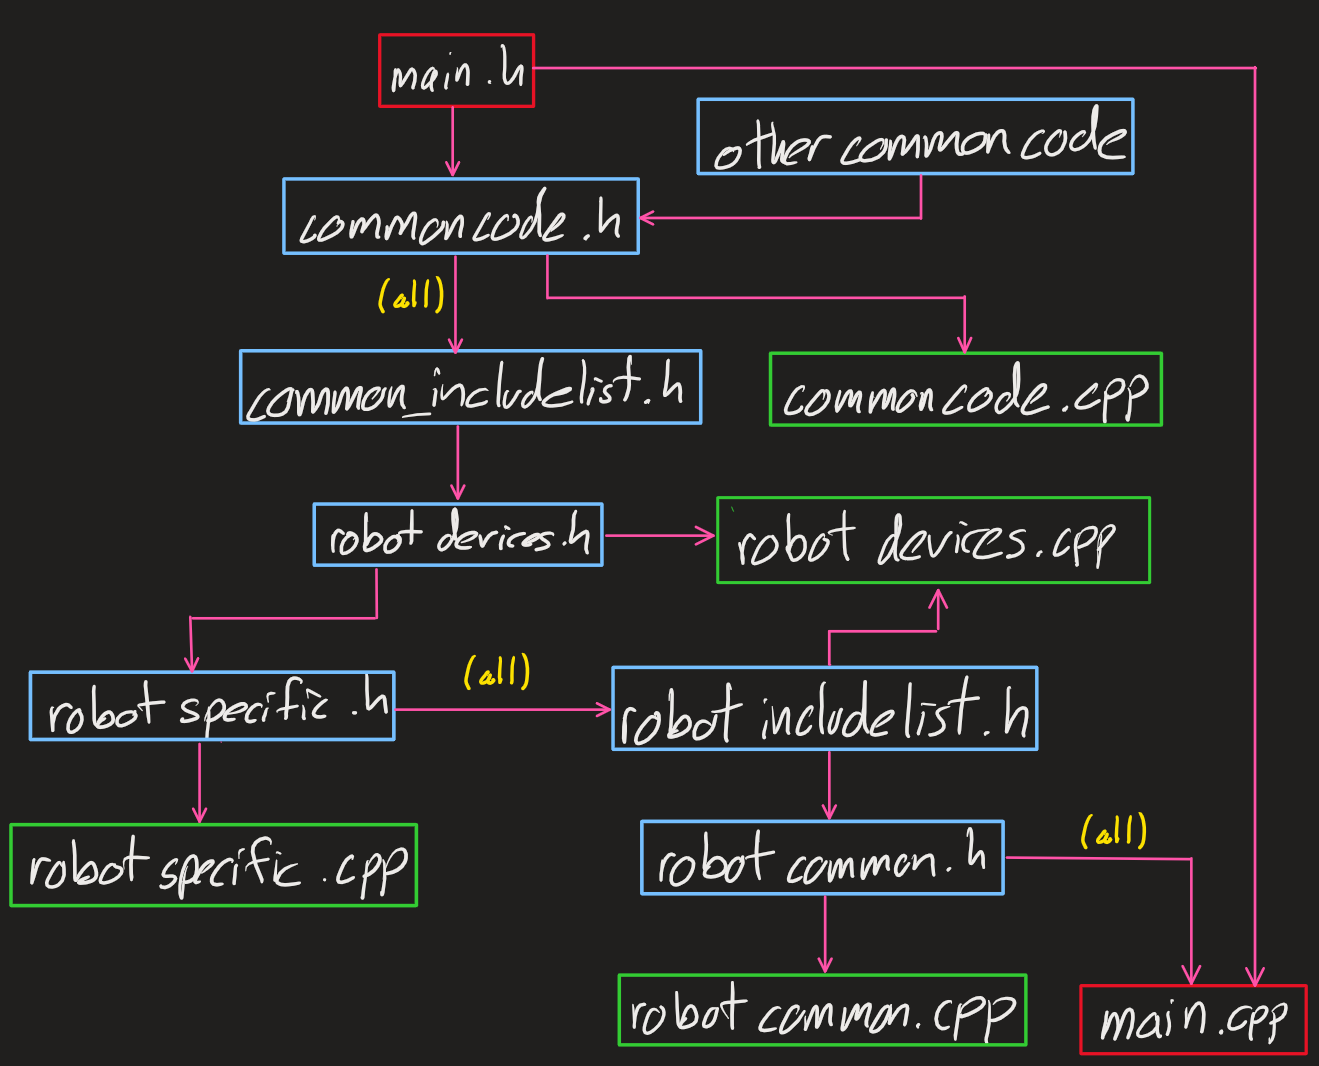 main.h
other common code
common code.h
(all)
common_includelist.h
common code.cpp
robot devices.h
robot devices.cpp
robot specific.h
(all)
robot includelist.h
robot specific.cpp
robot common.h
(all)
robot common.cpp
main.cpp